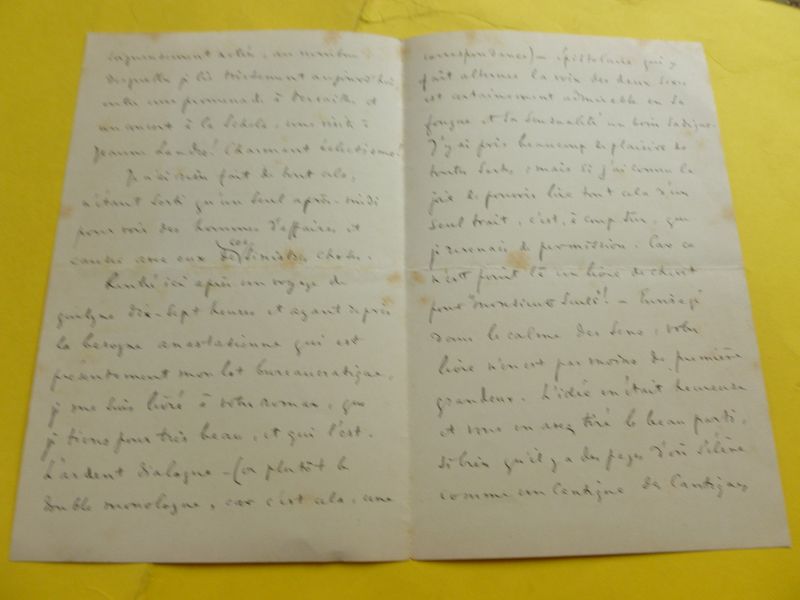 actés, au nombre
desquelles je lis tristement aujourd'hui
une promenade à Versailles et
un concert à la Schola, une visite à
Jeanne Landre! Charmant éclectisme!
Je n'ai rien fait de tout cela,
n'étant sorti qu'un seul après-midi
pour voir des hommes d'affaires et
causer avec eux de ces sinistres choses.
Rendu ici après un voyage de
quelque dix-sept heures et ayant repris
la besogne anastasienne qui est
présentement mon lot bureaucratique,
je me suis livré à votre roman, que
je tiens pour très beau, et qui l'est.
L'ardent dialogue - (ou plutôt le
double monologue, car c'est cela, une
correspondance) - épistolaire qui y
fait alterner la voix des deux sexes
est certainement admirable en sa
fougue et sa sensualité un brin sadique.
J'y ai pris beaucoup de plaisirs de
toutes sortes, mais si j'ai connu la
joie de pouvoir lire tout cela d'un
seul trait, c'est, à coup sûr, que
je revenais de permission. Car ce
n'est point là un livre de chevet
pour "monsieurs seuls"! - Envisagé
dans le calme des sens, votre
livre n'en est pas moins de première
grandeur. L'idée en était heureuse
et vous en avez tiré le beau parti,
si bien qu'il y a des pages d'où s'élève
comme un Cantique des Cantiques